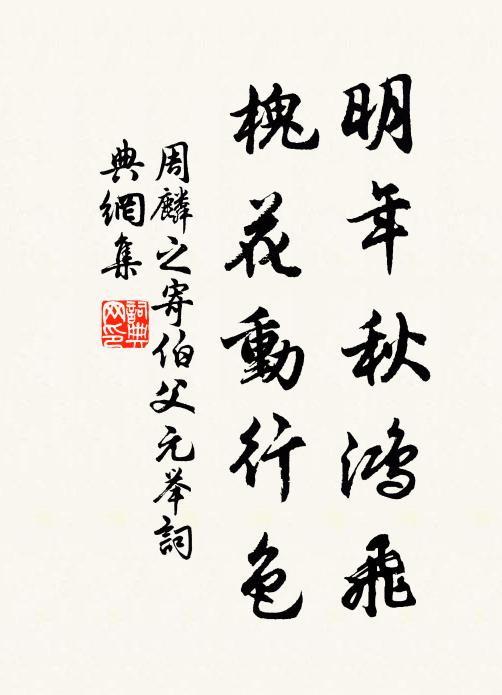 明年秋鴻飛
槐花動行色
周麟之寄伯父元举詞
典網集
詞典
网印